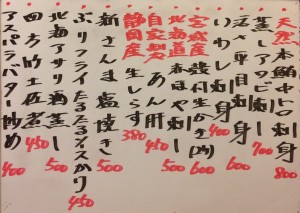 天然本鮪中トロ刺身 800
蒸しアワビ刺し 700
活〆平目刺身 600
いわし刺身 400
宮城産殻付生がき(2ヶ) 600
北海道産ほや刺し 500
自家製あん肝 450
静岡産生しらす 380
新さんま塩焼き 500
ぶりフライたるたるデスかり 450
北海アサリ酒蒸し 500
四方竹土佐煮 450
アスパラバター炒め 400